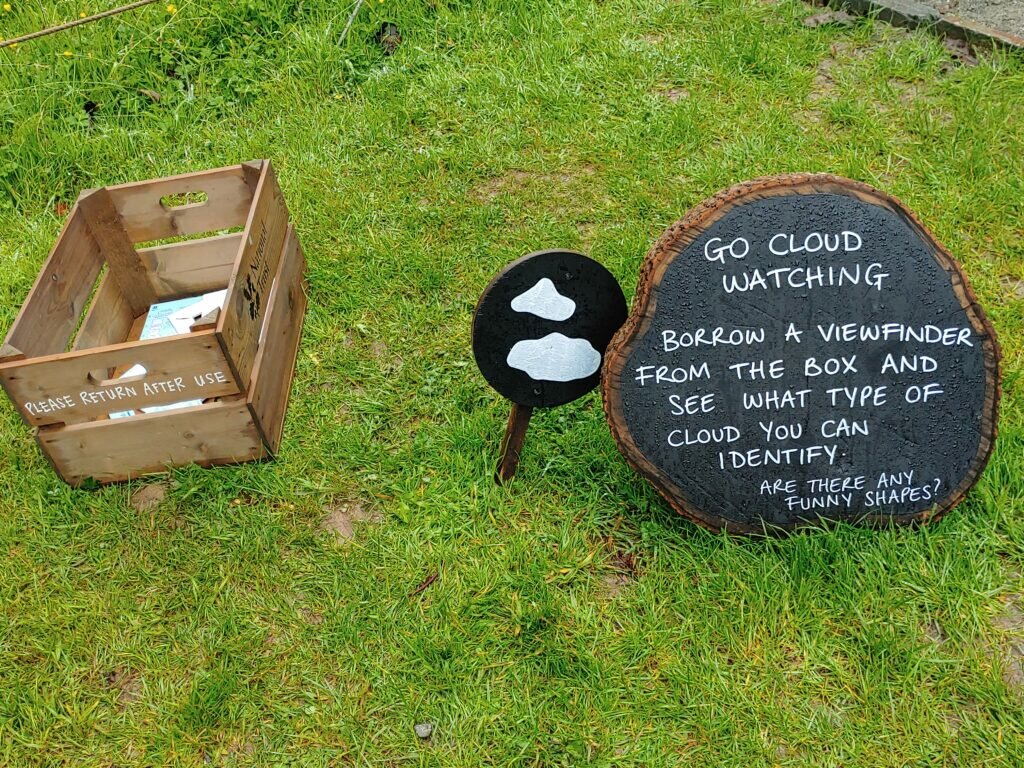 National
Trust
PLEASE RETURN AFTER USE
GO CLOUD
WATCHING
BORROW A VIEWFINDER
FROM THE BOX AND
SEE WHAT TYPE OF
CLOUD YOU CAN
IDENTIFY.
ARE THERE ANY
FUNNY SHAPES?